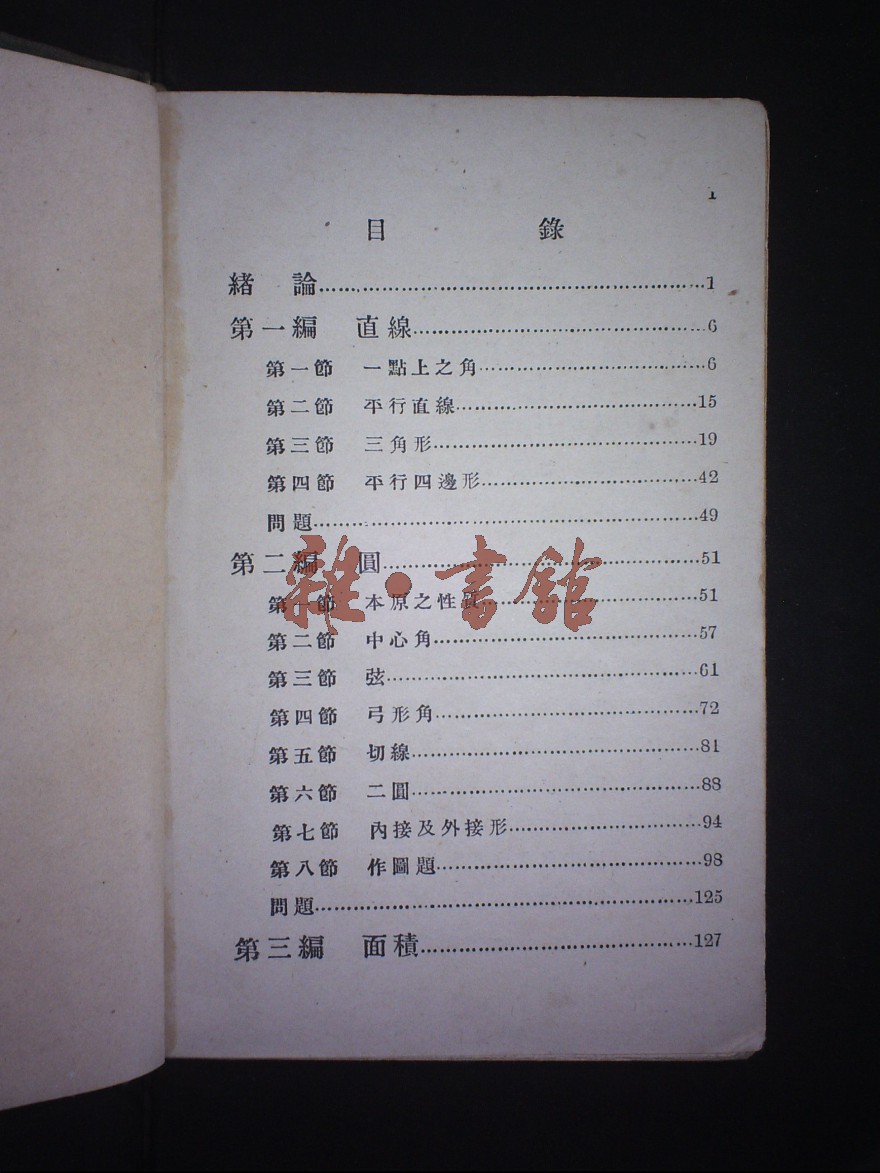 1
目 錄
緒 論……………………………1
第一編 直線……………………………6
第一節 一點上之角……………………………6
第二節 平行直線……………………………15
第三節 三角形……………………………19
第四節 平行四邊形……………………………42
問題……………………………49
第二編 圓……………………………51
雜·書館
第一節 本原之性質……………………………51
第二節 中心角……………………………57
第三節 弦……………………………61
第四節 弓形角……………………………72
第五節 切線……………………………81
第六節 二圓……………………………88
第七節 內接及外接形……………………………94
第八節 作圖題……………………………98
問題……………………………125
第三編 面積……………………………127